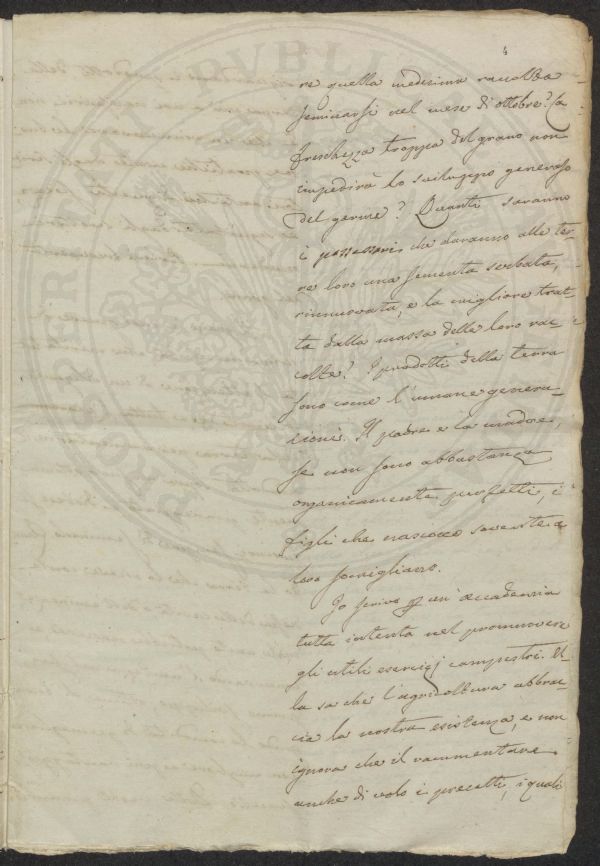 4
re quella medesima raccolta
seminarsi nel mese di ottobre? La
freschezza troppa del grano non
impedirà lo sviluppo generoso
del germe? Quanti saranno
i possessori che daranno alle ter-
re loro una sementa serbata,
rinnovata, e la migliore trat-
ta dalla massa delle loro rac-
colte? I prodotti della terra
sono come l'umane genera-
zioni. Il padre e la madre
se non sono abbastanza
organicamente perfetti i
figli che nascono sovente a
loro somigliano.
Io scrivo per un' accademia
tutta intenta nel promuovere
gli utili esercizj campestri. El-
la sa che l'agricoltura abbrac-
cia la nostra esistenza, e non
ignora che il rammentare
anche di volo i precetti, i quali
PROSPERITATI PVBLI